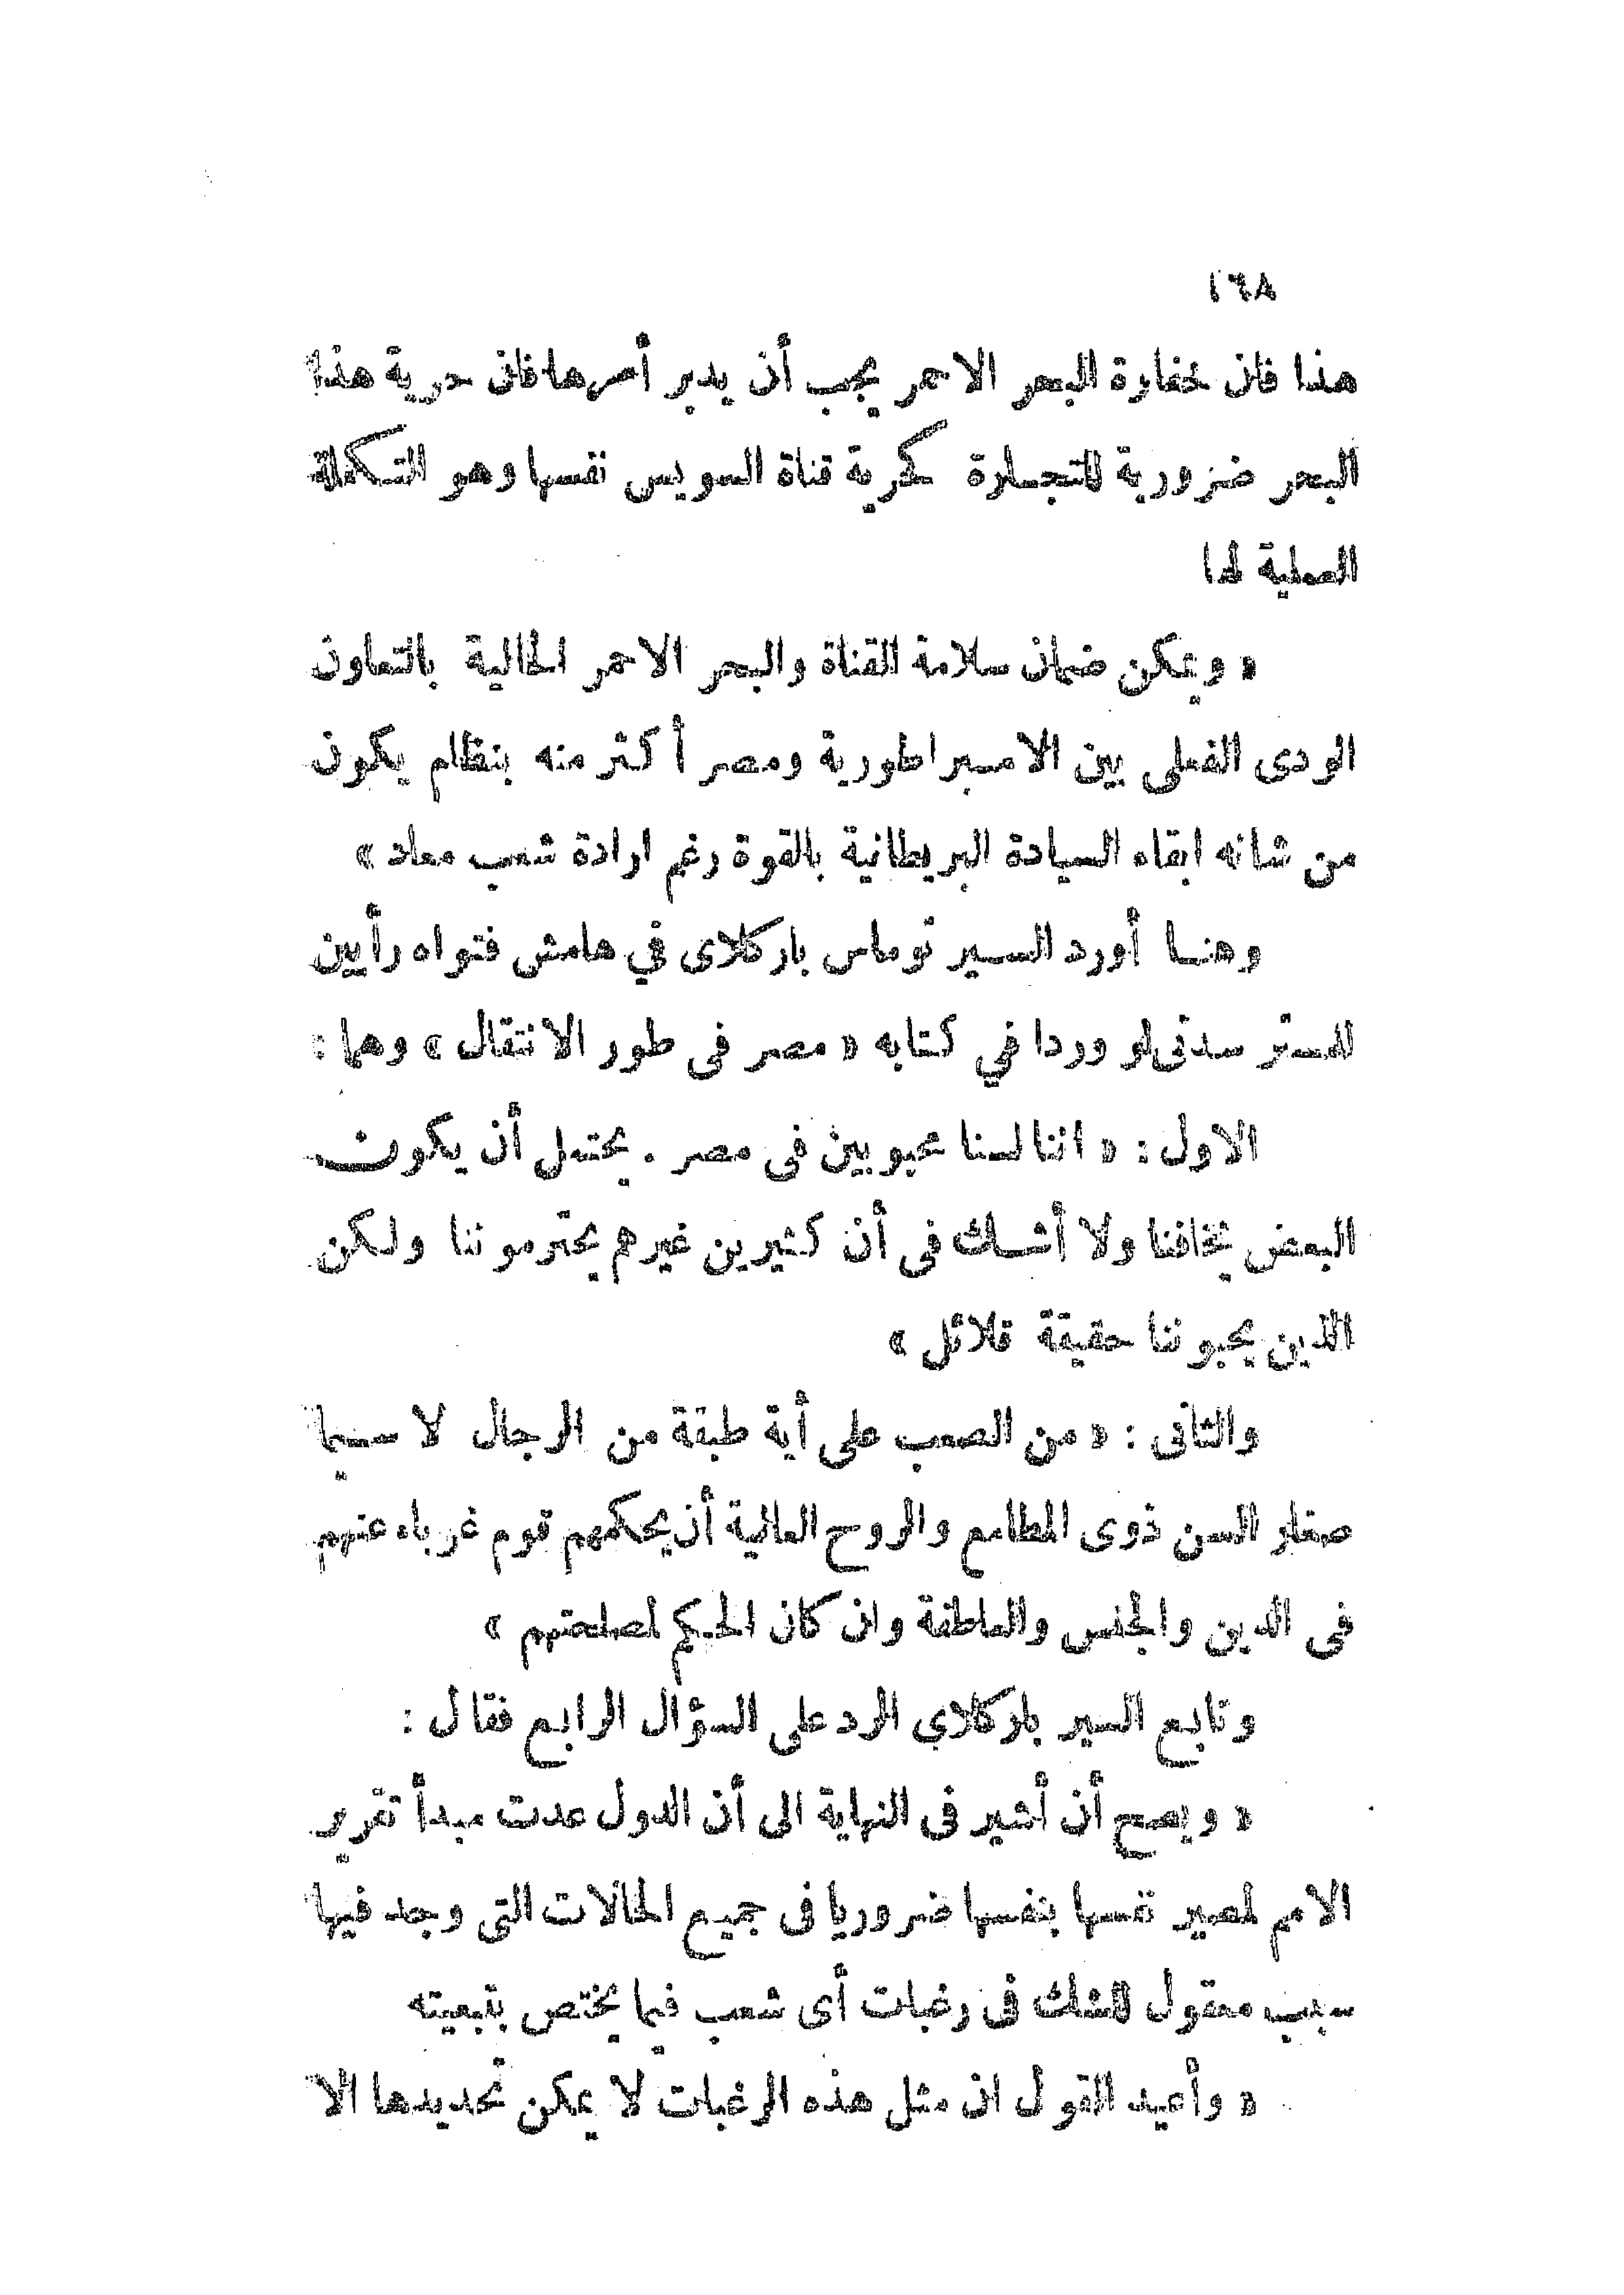 ١٦٨
هذا فان خفارة البحر الاحمر يجب أن يدبر أمرها فان حرية هذا
البحر ضرورية للتجارة كحرية قناة السويس نفسها وهو التكملة
العملية لها
« ويمكن ضمان سلامة القناة والبحر الاحمر الحالية بالتعاون
الودى الفعلى بين الامبراطورية ومصر أكثر منه بنظام يكون
من شانه ابقاء السيادة البريطانية بالقوة رغم ارادة شعب معاد »
وهنا أورد السير توماس باركلاى في هامش فتواه رأيين
للمستر سدنى لو وردا في كتابه « مصر فى طور الانتقال » وهما :
الاول : « اننا لسنا محبوبين فى مصر . يحتمل أن يكون
البعض يخافنا ولا أشك فى أن كثيرين غيرهم يحترموننا ولكن
الذين يحبوننا حقيقة قلائل »
والثانى : « من الصعب على أية طبقة من الرجال لا سيما
صغار السن ذوى المطامع والروح العالية أن يحكمهم قوم غرباء عنهم
فى الدين والجنس والعاطفة وان كان الحكم لمصلحتهم »
وتابع السير باركلاي الرد على السؤال الرابع فقال :
« ويصح أن أشير فى النهاية الى أن الدول عدت مبدأ تقرير
الامم لمصير نفسها بنفسها ضروريا فى جميع الحالات التى وجد فيها
سبب معقول للشك فى رغبات أى شعب فيما يختص بتبعيته
« وأعيد القول ان مثل هذه الرغبات لا يمكن تحديدها الا